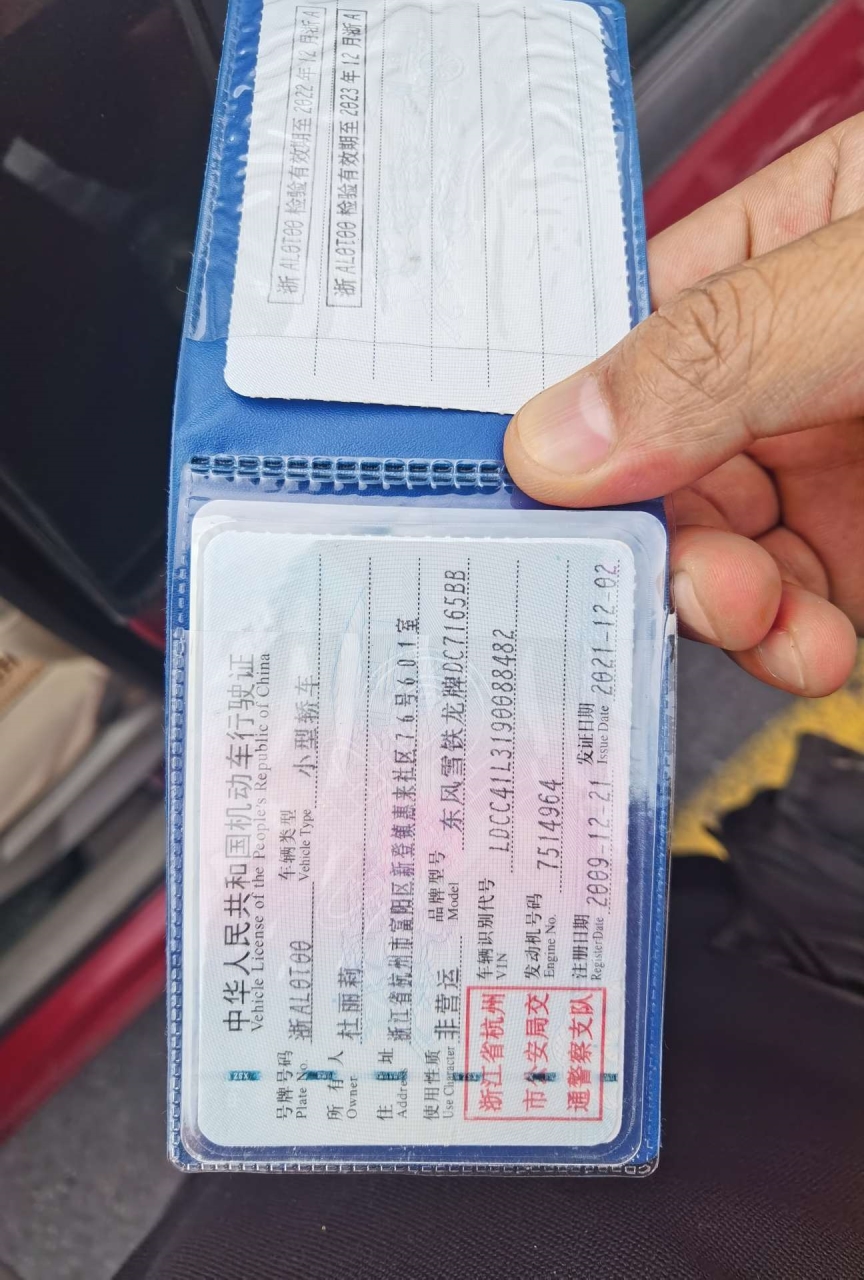 浙AL0T00 检验有效期至 2022 年 12 月浙A
浙AL0T00 检验有效期至 2023 年 12 月浙A
中华人民共和国机动车行驶证
Vehicle License of the People's Republic of China
号牌号码 浙AL0T00 车辆类型 小型轿车
Plate No. Vehicle Type
所有人 杜丽莉
Owner
住址 浙江省杭州市富阳区新登镇惠来社区76号601室
Address
使用性质 非营运 品牌型号 东风雪铁龙牌DC7165BB
Use Character Model
浙江省杭州
市公安局交
通警察支队
车辆识别代号 LDCC41L3190088482
VIN
发动机号码 7514964
Engine No.
注册日期 2009-12-21 发证日期 2021-12-02
Register Date Issue Date